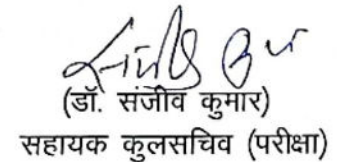 (डॉ. संजीव कुमार)
सहायक कुलसचिव (परीक्षा)